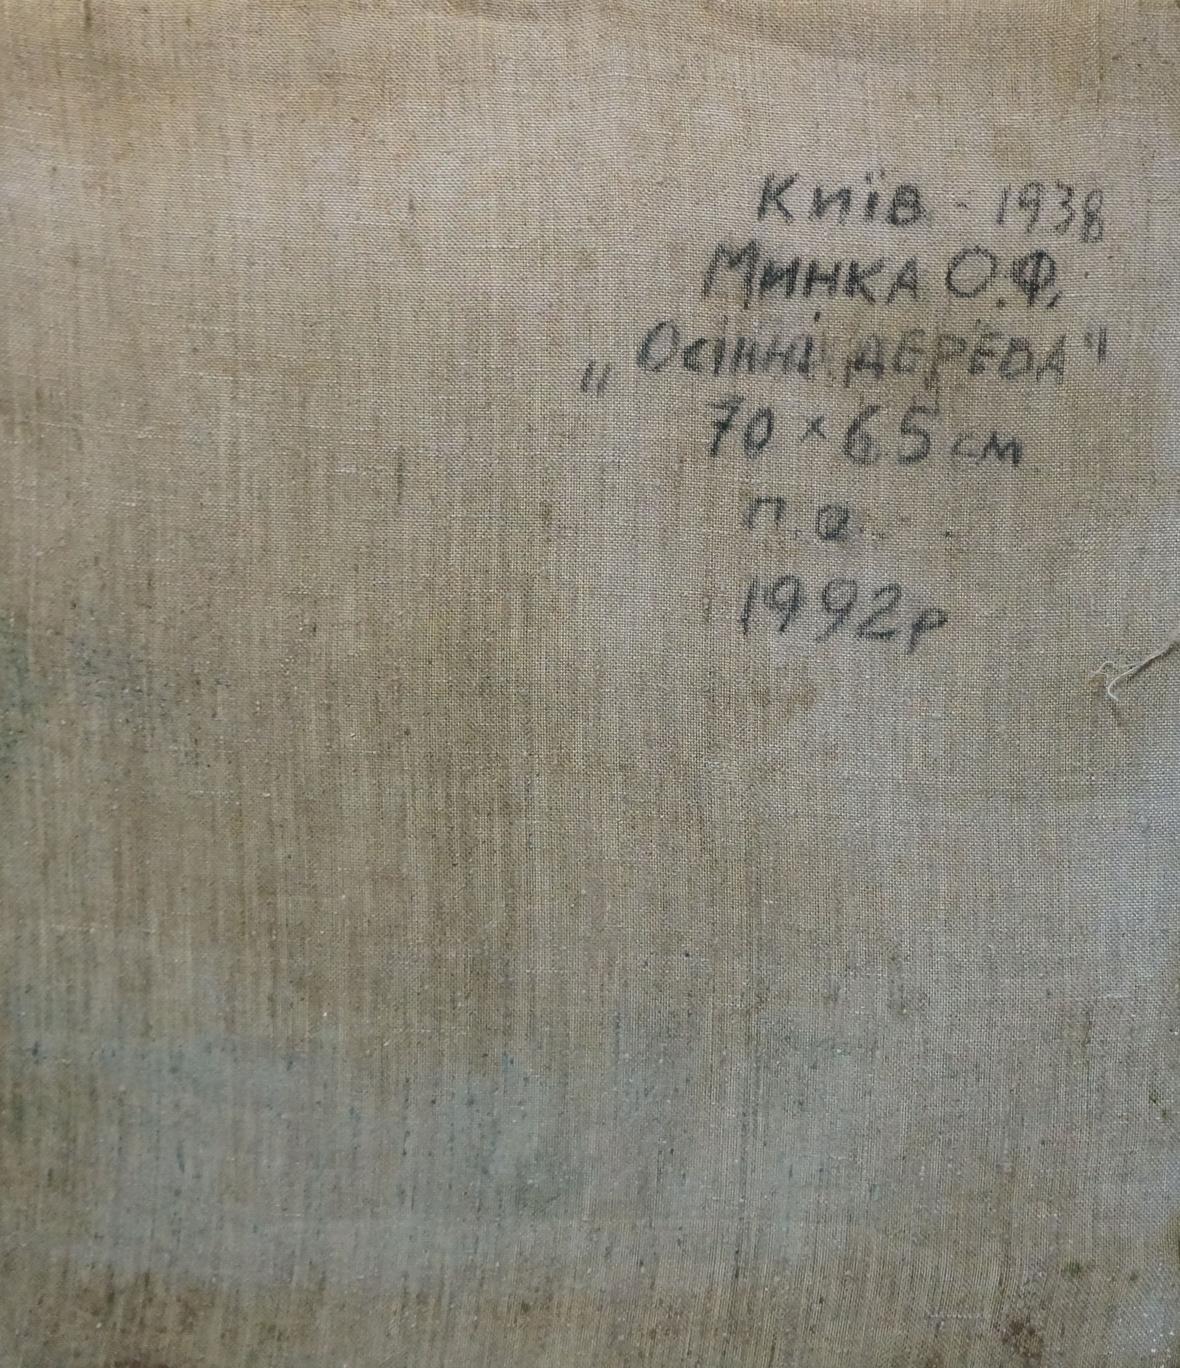 Київ - 1938
Минка О.Ф.
„Осінні дерева"
70 × 65 см
п.о.
1992р